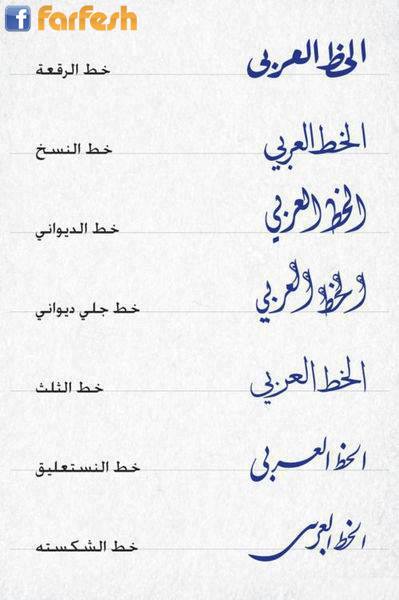 f farfesh
الخط العربي خط الرقعة
الخط العربي خط النسخ
الخط العربي خط الديواني
الخط العربي خط جلي ديواني
الخط العربي خط الثلث
الخط العربي خط النستعليق
الخط العربي خط الشكسته